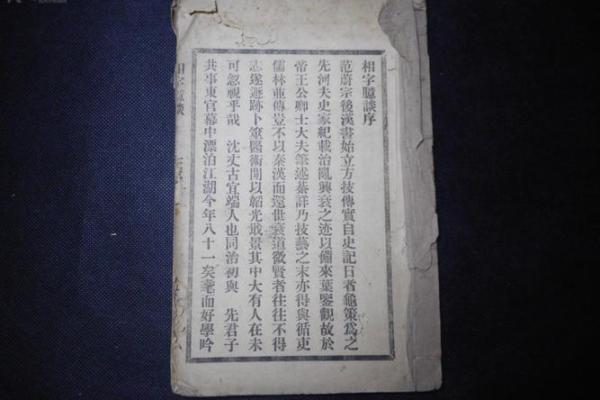 相字臆談序
范蔚宗後漢書始立方技傳實自史記日者龜策爲之
先河夫史家紀載治亂興衰之迹以備來葉鑒觀故於
帝王公卿士大夫筆述綦詳乃技藝之末亦得與循吏
儒林並傳豈不以秦漢而還世衰道微賢者往往不得
志遂遯跡卜筮醫術間以韜光戢景其中大有人在未
可忽視乎哉 沈丈古宜端人也同治初與 先君子
共事東官幕中漂泊江湖今年八十一矣耄而好學吟
相字臆談